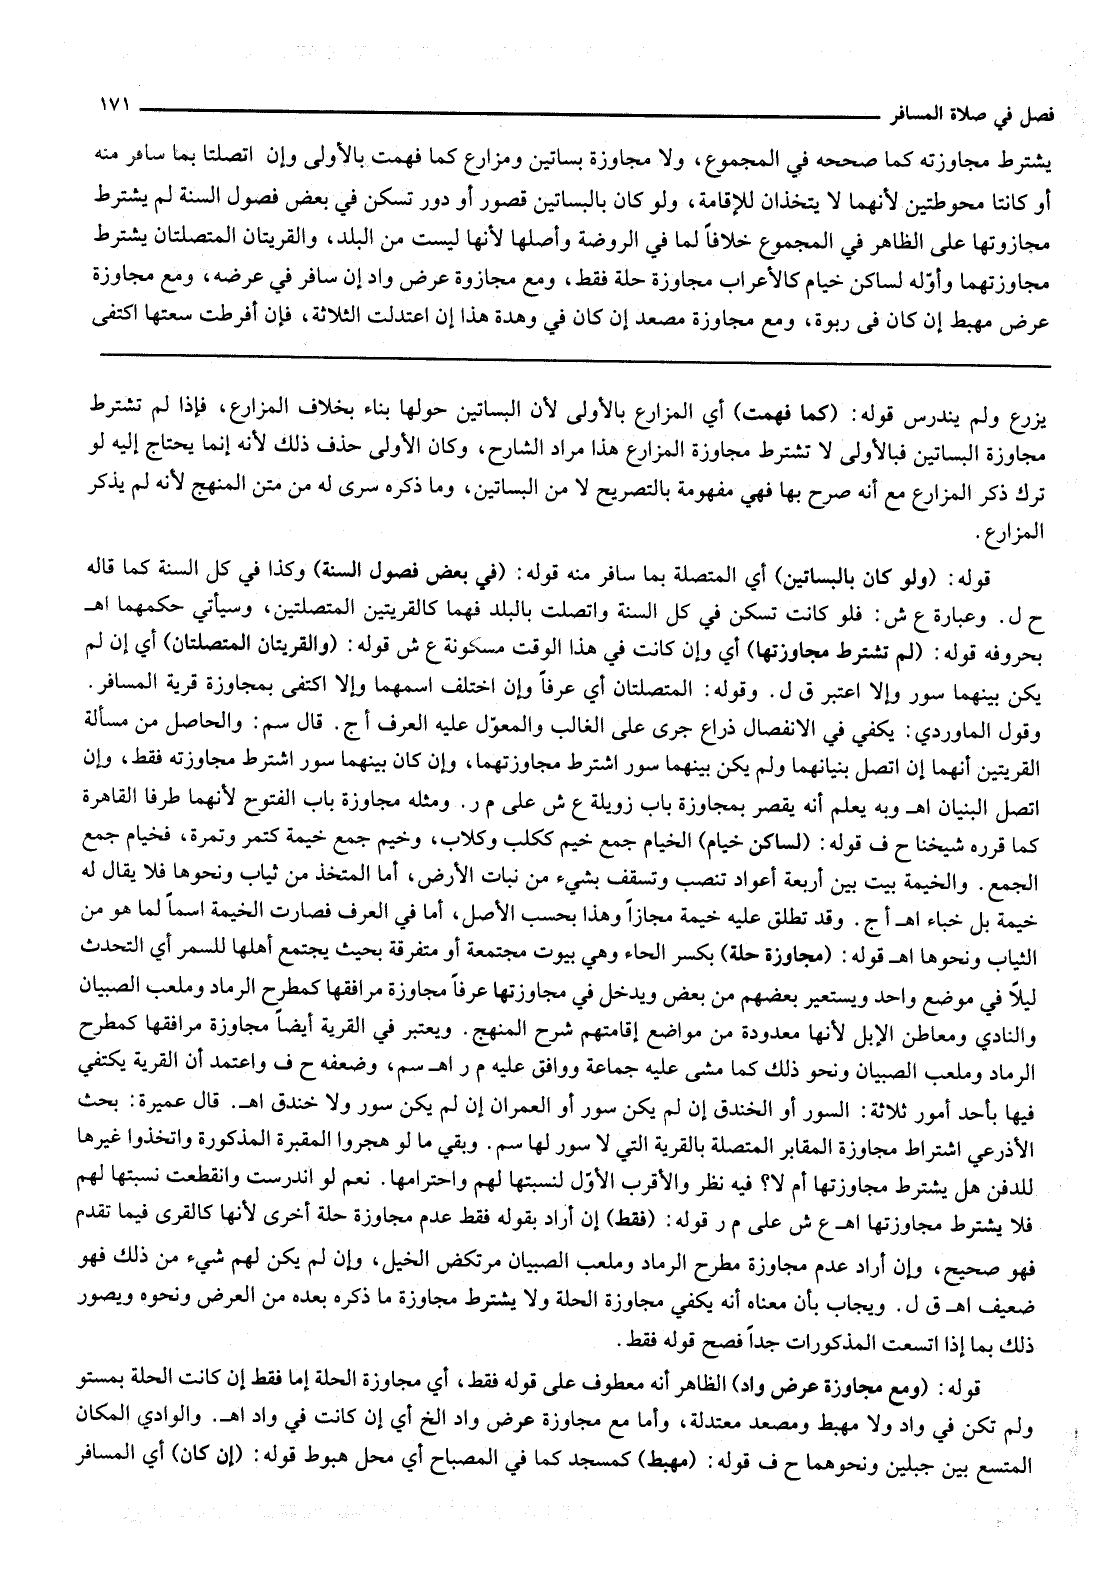 فصل في صلاة المسافر ١٧١
يشترط مجاوزته كما صححه في المجموع، ولا مجاوزة بساتين ومزارع كما فهمت بالأولى وإن اتصلتا بما سافر منه
أو كانتا محوطتين لأنهما لا يتخذان للإقامة، ولو كان بالبساتين قصور أو دور تسكن في بعض فصول السنة لم يشترط
مجازوتها على الظاهر في المجموع خلافاً لما في الروضة وأصلها لأنها ليست من البلد، والقريتان المتصلتان يشترط
مجاوزتهما وأوّله لساكن خيام كالأعراب مجاوزة حلة فقط، ومع مجازوة عرض واد إن سافر في عرضه، ومع مجاوزة
عرض مهبط إن كان في ربوة، ومع مجاوزة مصعد إن كان في وهدة هذا إن اعتدلت الثلاثة، فإن أفرطت سعتها اكتفى
يزرع ولم يندرس قوله: (كما فهمت) أي المزارع بالأولى لأن البساتين حولها بناء بخلاف المزارع، فإذا لم تشترط
مجاوزة البساتين فبالأولى لا تشترط مجاوزة المزارع هذا مراد الشارح، وكان الأولى حذف ذلك لأنه إنما يحتاج إليه لو
ترك ذكر المزارع مع أنه صرح بها فهي مفهومة بالتصريح لا من البساتين، وما ذكره سرى له من متن المنهج لأنه لم يذكر
المزارع.
قوله: (ولو كان بالبساتين) أي المتصلة بما سافر منه قوله: (في بعض فصول السنة) وكذا في كل السنة كما قاله
ح ل. وعبارة ع ش: فلو كانت تسكن في كل السنة واتصلت بالبلد فهما كالقريتين المتصلتين، وسيأتي حكمهما اهـ
بحروفه قوله: (لم تشترط مجاوزتها) أي وإن كانت في هذا الوقت مسكونة ع ش قوله: (والقريتان المتصلتان) أي إن لم
يكن بينهما سور وإلا اعتبر ق ل. وقوله: المتصلتان أي عرفاً وإن اختلف اسمهما وإلا اكتفى بمجاوزة قرية المسافر.
وقول الماوردي: يكفي في الانفصال ذراع جرى على الغالب والمعوّل عليه العرف أ ج. قال سم: والحاصل من مسألة
القريتين أنهما إن اتصل بنيانهما ولم يكن بينهما سور اشترط مجاوزتهما، وإن كان بينهما سور اشترط مجاوزته فقط، وإن
اتصل البنيان اهـ وبه يعلم أنه يقصر بمجاوزة باب زويلة ع ش على م ر. ومثله مجاوزة باب الفتوح لأنهما طرفا القاهرة
كما قرره شيخنا ح ف قوله: (لساكن خيام) الخيام جمع خيم ككلب وكلاب، وخيم جمع خيمة كتمر وتمرة، فخيام جمع
الجمع. والخيمة بيت بين أربعة أعواد تنصب وتسقف بشيء من نبات الأرض، أما المتخذ من ثياب ونحوها فلا يقال له
خيمة بل خباء اهـ أ ج. وقد تطلق عليه خيمة مجازاً وهذا بحسب الأصل، أما في العرف فصارت الخيمة اسماً لما هو من
الثياب ونحوها اهـ قوله: (مجاوزة حلة) بكسر الحاء وهي بيوت مجتمعة أو متفرقة بحيث يجتمع أهلها للسمر أي التحدث
ليلاً في موضع واحد ويستعير بعضهم من بعض ويدخل في مجاوزتها عرفاً مجاوزة مرافقها كمطرح الرماد وملعب الصبيان
والنادي ومعاطن الإبل لأنها معدودة من مواضع إقامتهم شرح المنهج. ويعتبر في القرية أيضاً مجاوزة مرافقها كمطرح
الرماد وملعب الصبيان ونحو ذلك كما مشى عليه جماعة ووافق عليه م ر اهـ سم، وضعفه ح ف واعتمد أن القرية يكتفي
فيها بأحد أمور ثلاثة: السور أو الخندق إن لم يكن سور أو العمران إن لم يكن سور ولا خندق اهـ. قال عميرة: بحث
الأذرعي اشتراط مجاوزة المقابر المتصلة بالقرية التي لا سور لها سم. وبقي ما لو هجروا المقبرة المذكورة واتخذوا غيرها
للدفن هل يشترط مجاوزتها أم لا؟ فيه نظر والأقرب الأوّل لنسبتها لهم واحترامها. نعم لو اندرست وانقطعت نسبتها لهم
فلا يشترط مجاوزتها اهـ ع ش على م ر قوله: (فقط) إن أراد بقوله فقط عدم مجاوزة حلة أخرى لأنها كالقرى فيما تقدم
فهو صحيح، وإن أراد عدم مجاوزة مطرح الرماد وملعب الصبيان مرتكض الخيل، وإن لم يكن لهم شيء من ذلك فهو
ضعيف اهـ ق ل. ويجاب بأن معناه أنه يكفي مجاوزة الحلة ولا يشترط مجاوزة ما ذكره بعده من العرض ونحوه ويصور
ذلك بما إذا اتسعت المذكورات جداً فصح قوله فقط.
قوله: (ومع مجاوزة عرض واد) الظاهر أنه معطوف على قوله فقط، أي مجاوزة الحلة إما فقط إن كانت الحلة بمستو
ولم تكن في واد ولا مهبط ومصعد معتدلة، وأما مع مجاوزة عرض واد الخ أي إن كانت في واد اهـ. والوادي المكان
المتسع بين جبلين ونحوهما ح ف قوله: (مهبط) كمسجد كما في المصباح أي محل هبوط قوله: (إن كان) أي المسافر